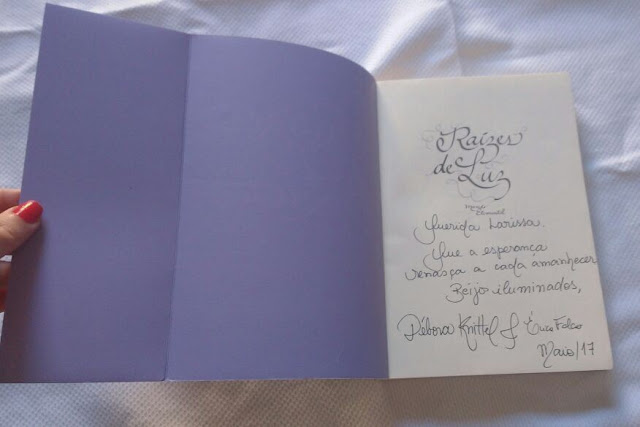 Raízes
de Luz
Querida Larissa.
Que a esperança
renasça a cada amanhecer
Beijos iluminados,
Débora Knittel
Maio/17